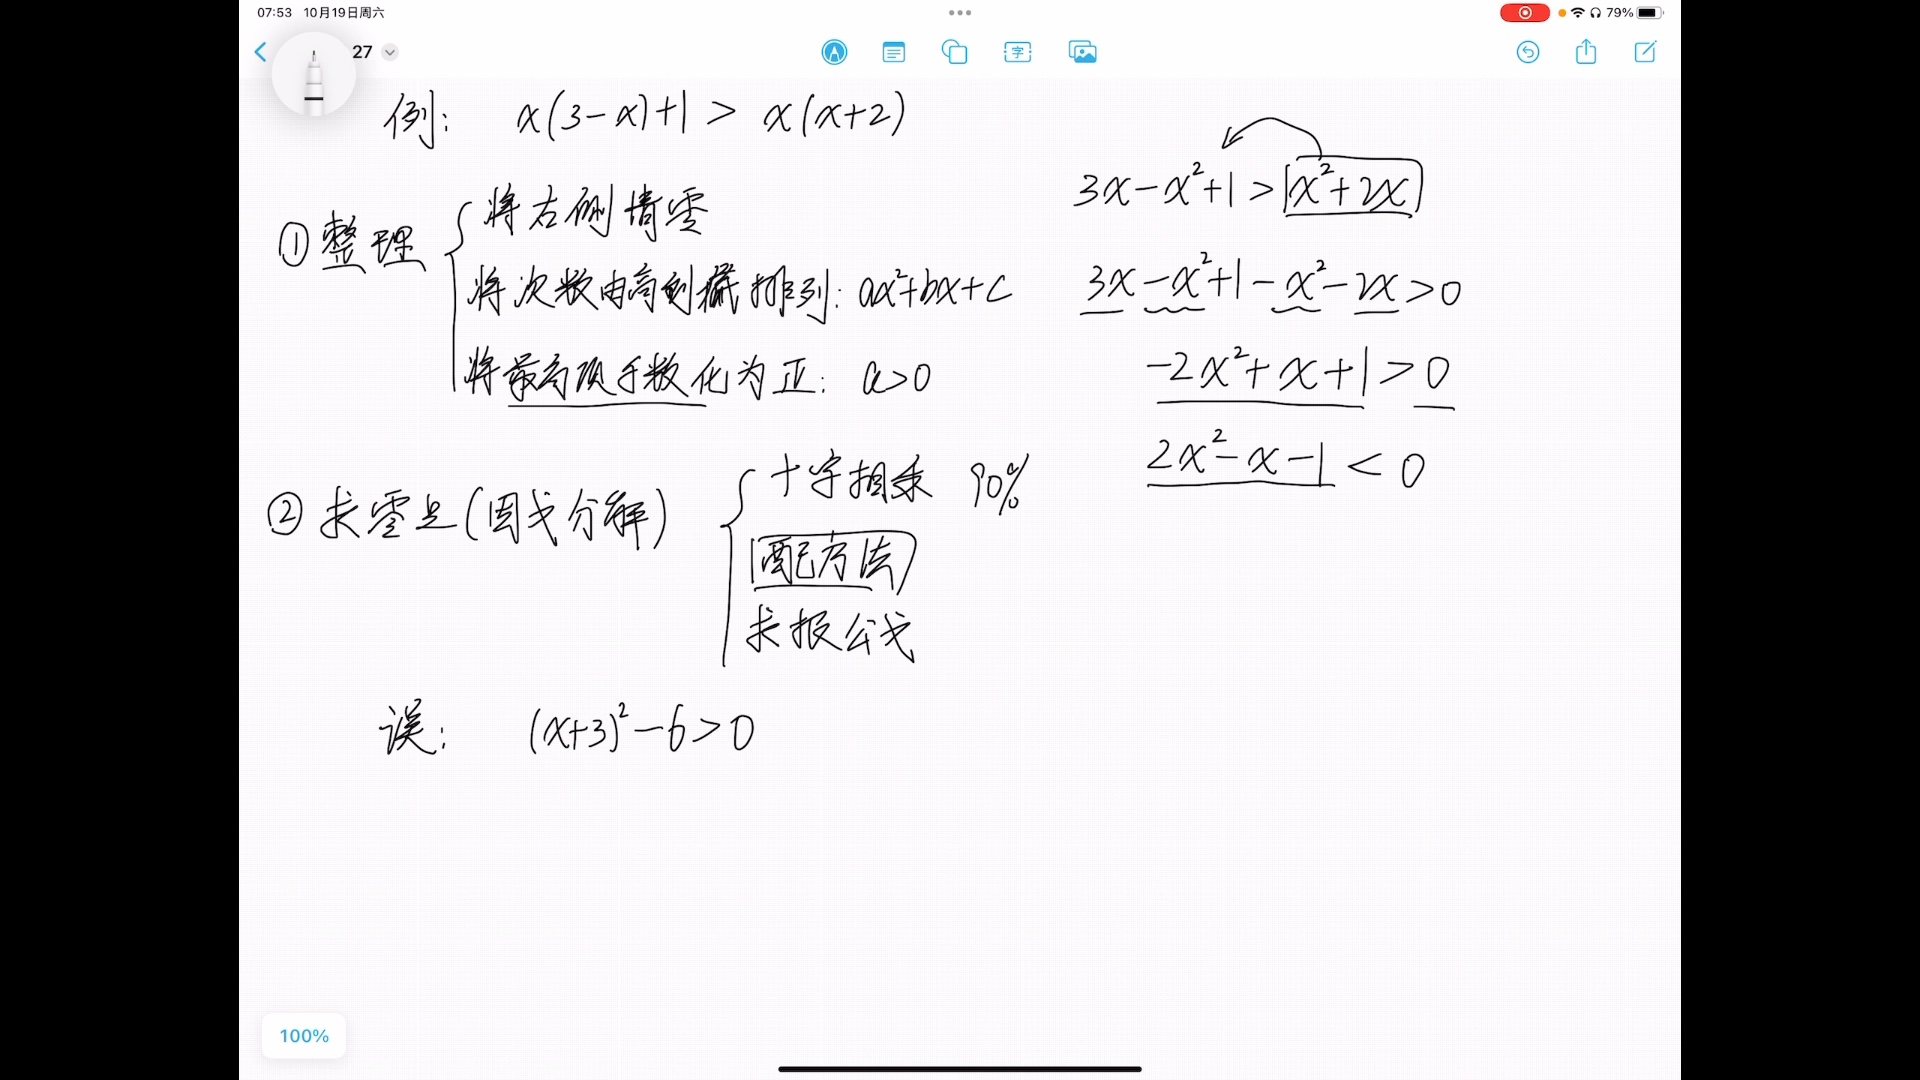 07:53 10月19日周六
79%
27
字
例: x(3-x)+1 > x(x+2)
①整理
将右侧清零
将次数由高到低排列: ax²+bx+c
将最高项系数化为正: a>0
3x-x²+1 > x²+2x
3x-x²+1-x²-2x>0
-2x²+x+1>0
2x²-x-1<0
②求零点(因式分解)
十字相乘 90%
配方法
求根公式
误: (x+3)²-6>0
100%